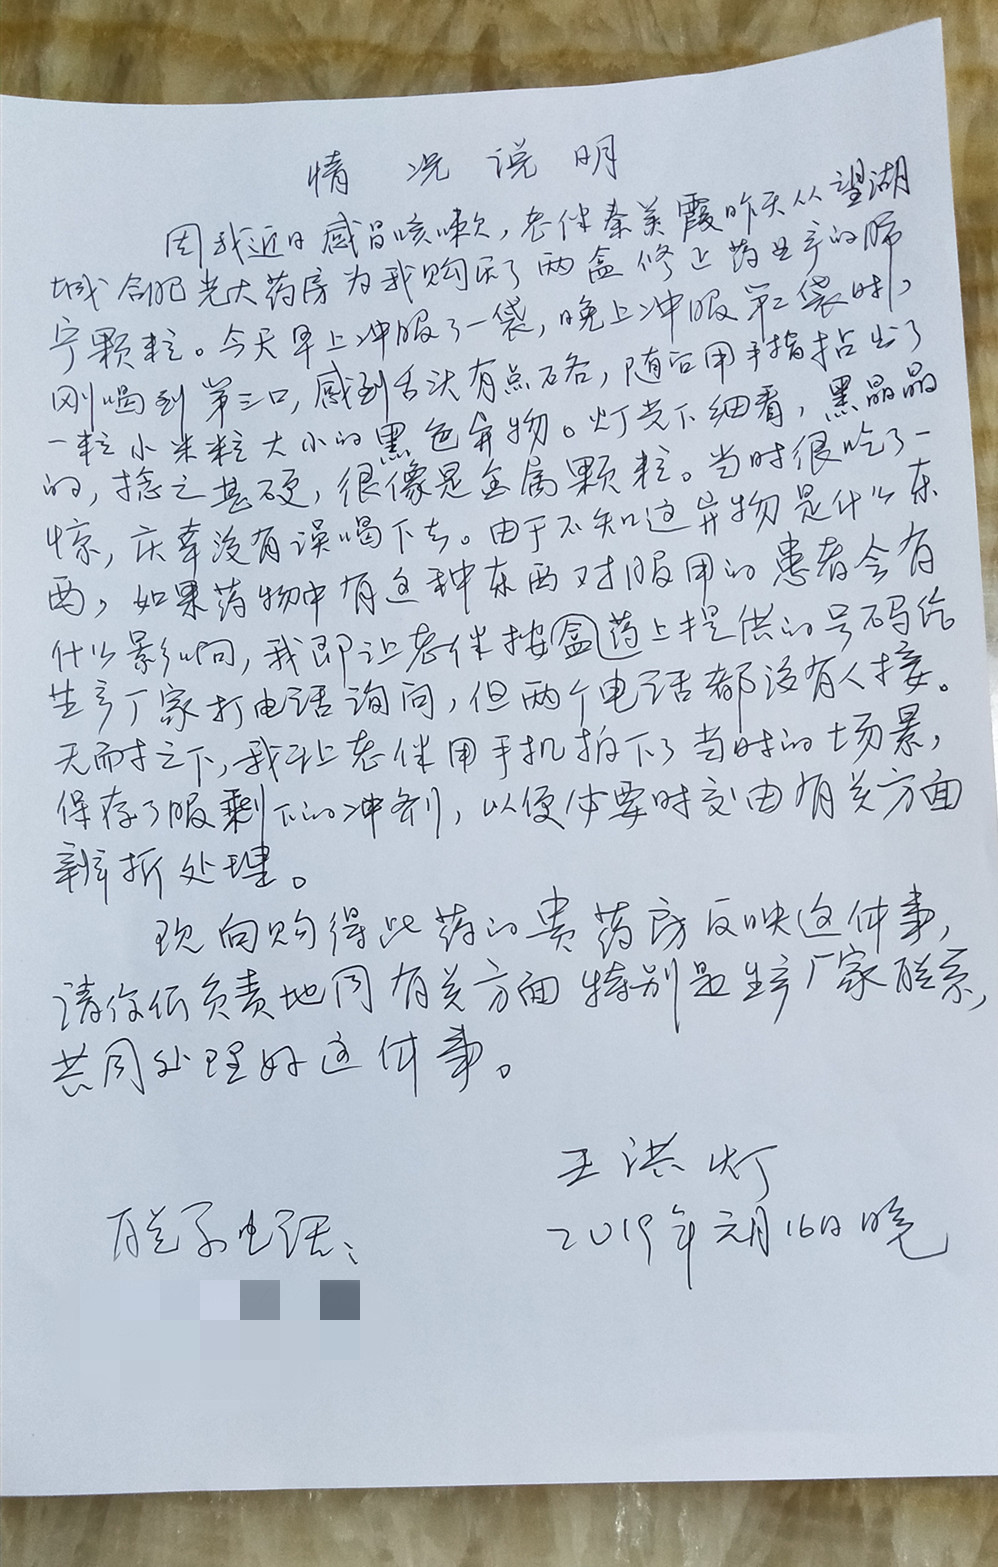 情况说明
因我近日感冒咳嗽，老伴秦美霞昨天从望湖
城合肥光大药房为我购买了两盒修正药业产的肺
宁颗粒。今天早上冲服了一袋，晚上冲服第二袋时，
刚喝到第三口，感到舌头有点硌，随后用手指拈出了
一粒小米粒大小的黑色异物。灯光下细看，黑晶晶
的，捻之甚硬，很像是金属颗粒。当时很吃了一
惊，庆幸没有误喝下去。由于不知这异物是什么东
西，如果药物中有这种东西对服用的患者会有
什么影响，我即让老伴按盒药上提供的号码给
生产厂家打电话询问，但两个电话都没有人接。
无耐之下，我让老伴用手机拍下了当时的场景，
保存了服剩下的冲剂，以便必要时交由有关方面
辨析处理。
现向购得此药的贵药房反映这件事，
请你们负责地同有关方面特别是生产厂家联系，
共同处理好这件事。
王洪灯
联系电话：
2019年元月16日晚